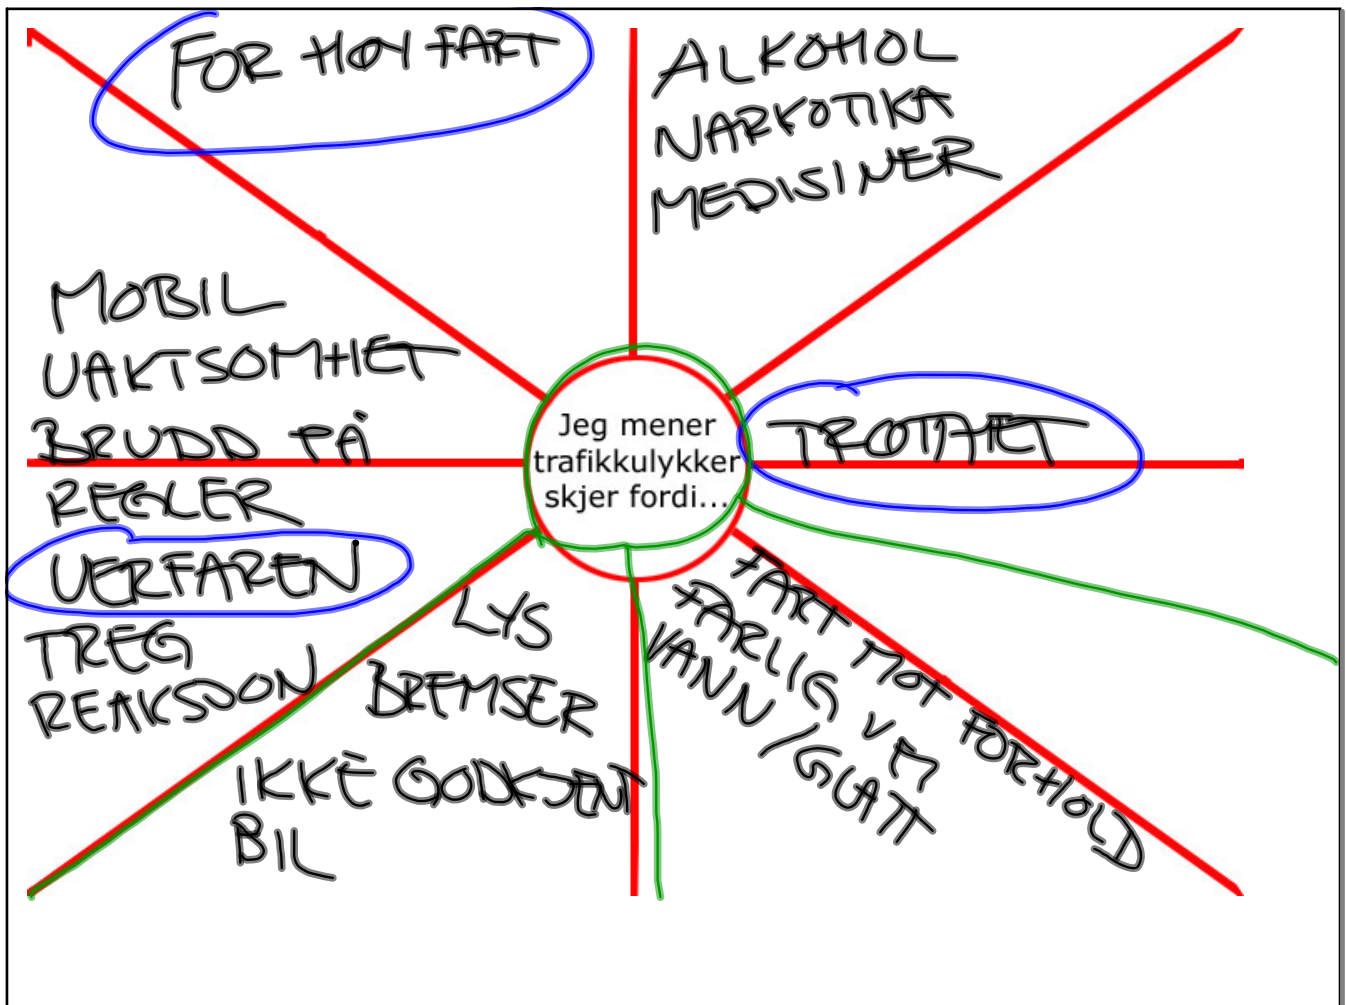 FOR HØY FART
ALKOHOL
NARKOTIKA
MEDISINER
MOBIL
UAKTSOMHET
BRUDD PÅ
REGLER
UERFAREN
TREG
REAKSJON
Jeg mener
trafikkulykker
skjer fordi...
TRØTTHET
LYS
BREMSER
IKKE GODKJENT
BIL
FART MOT FORHOLD
FARLIG VEI
VANN/GLATT